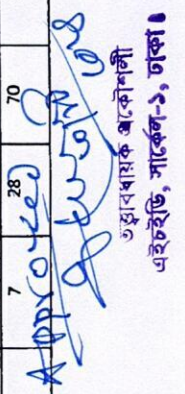 7 28 70
Approved
তত্ত্বাবধায়ক প্রকৌশলী
এইচইডি, সার্কেল-১, ঢাকা।